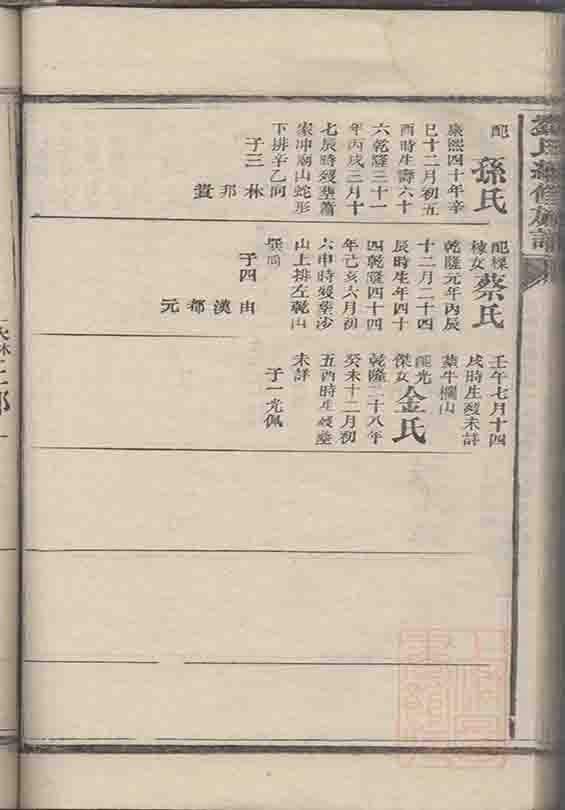 配
孫氏
康熙四十年辛
巳十二月初五
酉時生壽六十
六乾隆三十一
年丙戌三月十
七辰時歿塟蕭
家冲廟山蛇形
下排辛乙向
子三
林
邦
配
棟女
蔡氏
乾隆元年丙辰
十二月二十四
辰時生年四十
四乾隆四十四
年己亥六月初
六申時歿塟沙
山上排左乾山
巽向
子四
由
漢
都
元
壬午七月十四
戌時生歿未詳
塟牛欄山
配光
傑女
金氏
乾隆二十八年
癸未十二月初
五酉時生歿塟
未詳
子一光佩
氏續修族譜